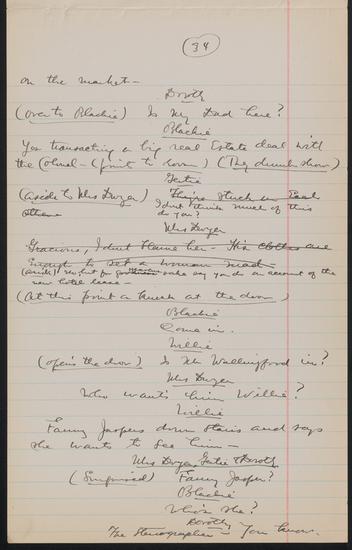 34
on the market —
Doroth
(over to Blackie) Is my Dad here?
Blackie
Yes transacting a big real Estate deal with
the Colonel — (point to room) (They dumb show)
Gertie
(aside to Mrs Dwyer) They're stuck on Each
other I don't think much of this
do you?
Mrs Dwyer
Gracious, I don't blame her — His clothes are
Enough to set a woman mad —
(aside) no, but for sake say you do on account of the
new hotel lease —
(At this point a knock at the door)
Blackie
Come in.
Willie
(opens the door) Is Mr Wallingford in?
Mrs Dwyer
Who wants him Willie?
Willie
Fanny Jaspers down stairs and says
she wants to see him —
Mrs Dwyer Gertie & Doroth
(Surprised) Fanny Jasper?
Blackie
Who's she?
Doroth
The Stenographer — You know.